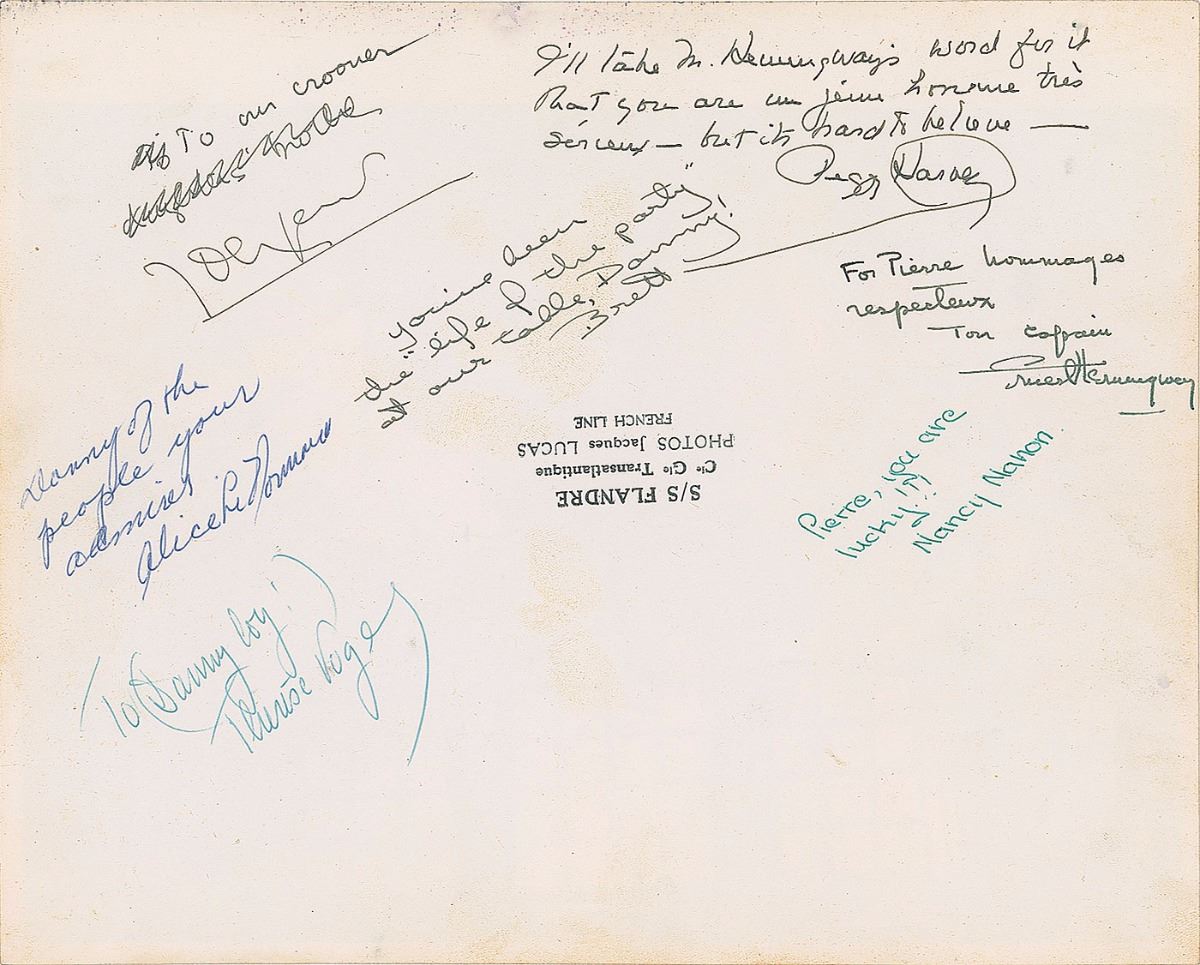 To our crooner
I'll take M. Hemingway's word for it
that you are un jeune homme très
sérieux — but it's hard to believe —
Peggy Harvey
you've been
the "life of the party"
at our table, Danny!
Brett
For Pierre hommages
respecteux
Ton copain
Ernest Hemingway
Danny of the
people your
admires
Alice
To Danny boy!
Thérèse
Pierre, you are
lucky!!!
Nancy Nahon.
S/S FLANDRE
Cie Gle Transatlantique
PHOTOS Jacques LUCAS
FRENCH LINE